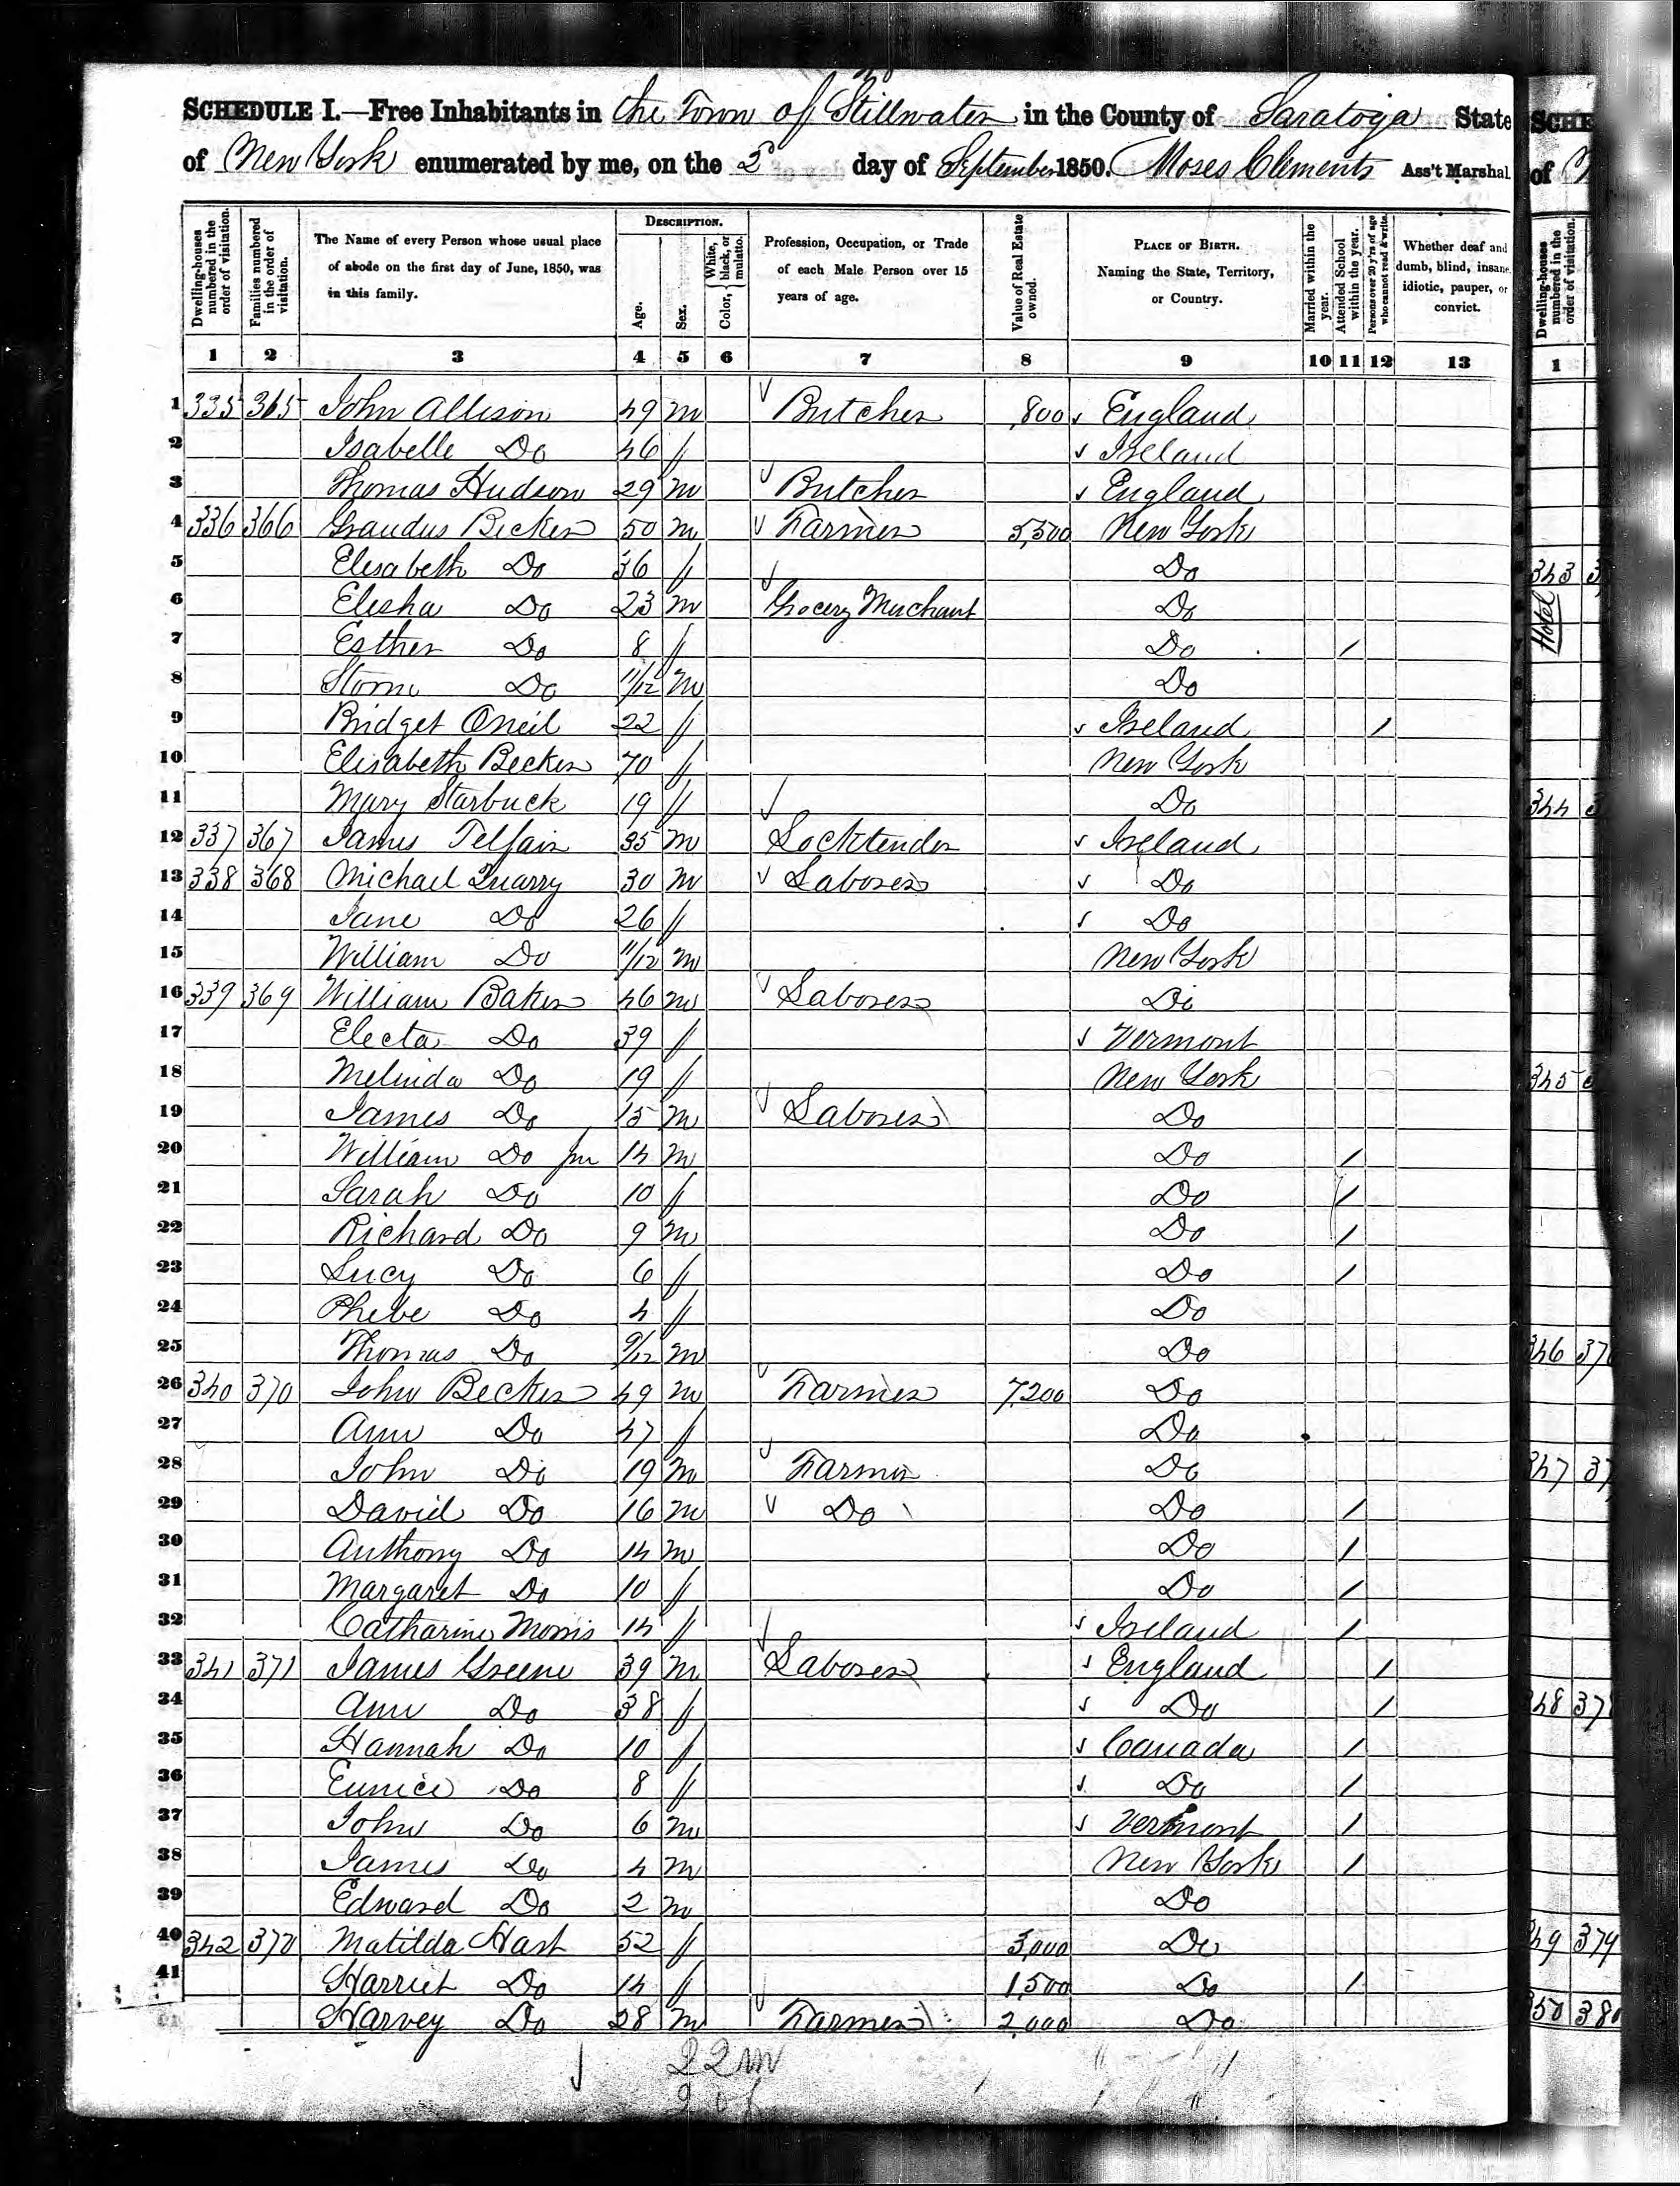 SCHEDULE I.—Free Inhabitants in the Town of Stillwater in the County of Saratoga State
of New York enumerated by me, on the 5 day of September 1850. Moses Clements Ass't Marshal.
Dwelling-houses numbered in the order of visitation. Families numbered in the order of visitation. The Name of every Person whose usual place of abode on the first day of June, 1850, was in this family. DESCRIPTION. Age. Sex. Color, White, black, or mulatto. Profession, Occupation, or Trade of each Male Person over 15 years of age. Value of Real Estate owned. PLACE OF BIRTH. Naming the State, Territory, or Country. Married within the year. Attended School within the year. Persons over 20 y'rs of age who cannot read & write. Whether deaf and dumb, blind, insane, idiotic, pauper, or convict.
1 2 3 4 5 6 7 8 9 10 11 12 13
1 335 365 John Allison 49 m Butcher 800 England
2 Isabelle Do 46 f Ireland
3 Thomas Hudson 29 m Butcher England
4 336 366 Becker 50 m Farmer 5,500 New York
5 Elisabeth Do 36 f Do
6 Elisha Do 23 m Grocery Merchant Do
7 Esther Do 8 f Do /
8 Storm Do 11/12 m Do
9 Bridget Oneil 22 f Ireland /
10 Elisabeth Becker 70 f New York
11 Mary Starbuck 19 f Do
12 337 367 James Telfair 35 m Locktender Ireland
13 338 368 Michael Quarry 30 m Laborer Do
14 Jane Do 26 f Do
15 William Do 11/12 m New York
16 339 369 William Baker 46 m Laborer Do
17 Electa Do 39 f Vermont
18 Melinda Do 19 f New York
19 James Do 15 m Laborer Do
20 William Do Jnr 14 m Do /
21 Sarah Do 10 f Do /
22 Richard Do 9 m Do /
23 Lucy Do 6 f Do /
24 Phebe Do 4 f Do
25 Thomas Do 9/12 m Do
26 340 370 John Becker 49 m Farmer 7,200 Do
27 Ann Do 47 f Do
28 John Do 19 m Farmer Do
29 David Do 16 m Do Do /
30 Anthony Do 14 m Do /
31 Margaret Do 10 f Do /
32 Catharine Morris 14 f Ireland /
33 341 371 James Greene 39 m Laborer England /
34 Ann Do 38 f Do /
35 Hannah Do 10 f Canada /
36 Eunice Do 8 f Do /
37 John Do 6 m Vermont /
38 James Do 4 m New York /
39 Edward Do 2 m Do
40 342 372 Matilda Hart 52 f 3,000 Do
41 Harriet Do 14 f 1,500 Do /
Harvey Do 28 m Farmer 2,000 Do
22 m
20 f
SCHE
of
Dwelling-houses numbered in the order of visitation.
1
343
Hotel
344
345
346
347
348
349 379
350 380